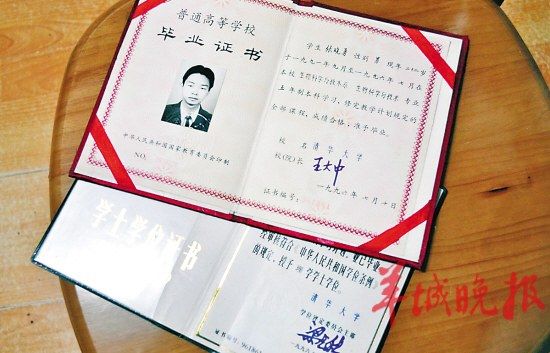 普通高等学校
毕业证书
中华人民共和国国家教育委员会印制
NO.
学生 张晓勇 性别 男 现年二十三岁
于一九九一年九月至一九九六年七月在
本校 生物科学与技术系 生物科学与技术 专业
五年制本科学习,修完教学计划规定的
全部课程,成绩合格,准予毕业。
校 名 清华大学
校(院)长 王大中
证书编号:
一九九六年七月十日
学士学位证书
经审核符合《中华人民共和国学位条例》
的规定,授予 理 学学士学位。
清华大学
学位评定委员会主席
证书编号
羊城晚报